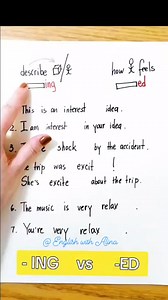 describe / how feels
ing ed
1. This is an interest idea.
2. I am interest in your idea.
3. shock by the accident.
trip was excit !
She's excite about the trip.
6. The music is very relax .
7. You're very relax .
@ English with Alma
- ING vs -ED